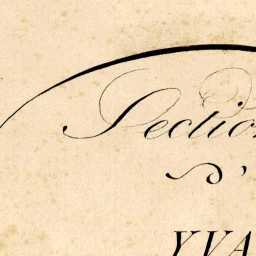 Sectio
YVA